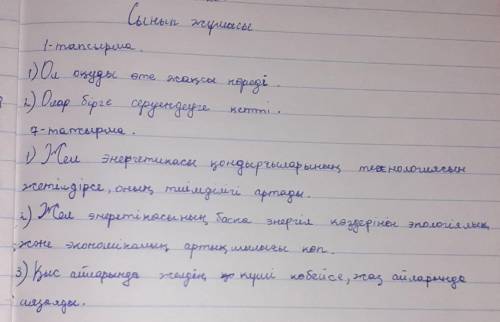 Сынып жұмысы
1-тапсырма.
1) Ол оқуды өте жақсы көреді.
2) Олар бірге серуендеуге кетті.
7-тапсырма.
1) Жел энергетикасы қондырғыларының технологиясын
жетілдірсе, оның тиімділігі артады.
2) Жел энергетікасының басқа энергия көздерінен экологиялық
және экономикалық артықшылығы көп.
3) Қыс айларында желдің күші көбейсе, жаз айларында
азаяды.